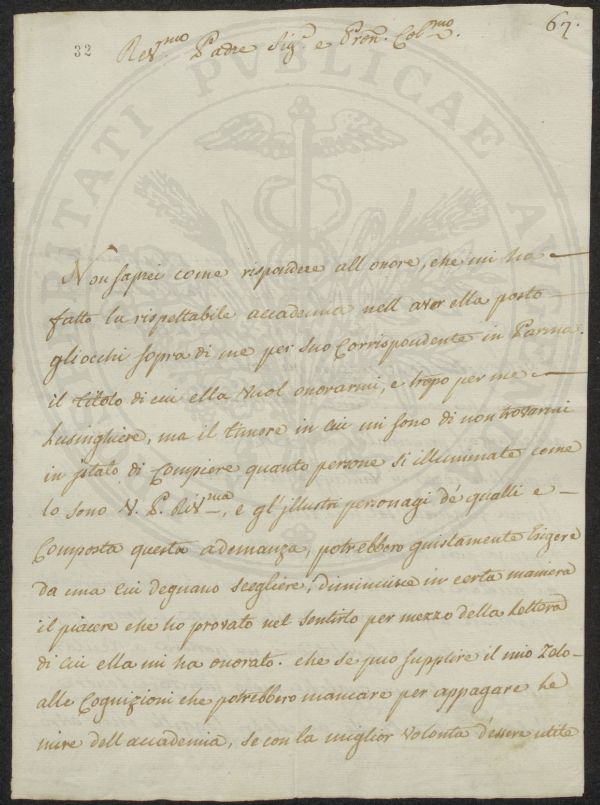 67.
32
Rev.mo Padre Sig.r e Pron. Col.mo
Non saprei come rispondere all onore, che mi ha
fatto la rispettabile accademia nell aver ella posto
gliocchi sopra di me per suo Corrispondente in Parma.
il titolo di cui ella vuol onorarmi, e tropo per me
Lusinghiere, ma il timore in cui mi sono di non trovarmi
in istato di Compiere quanto persone si illuminate come
lo sono V. P. Rev.ma, e gl'illustri personagi de qualli e
Composta questa adunanza, potrebbero guistamente Esigere
da una cui degnano scegliere, diminuisce in certa maniera
il piacere che ho provato nel sentirlo per mezzo della Lettera
di cui ella mi ha onorato. che se puo supplire il mio Zelo
alle Cognizioni che potrebbero mancare per appagare le
mire dell accademia, se con la miglior volonta d'essere utile
UTILITATI PUBLICAE